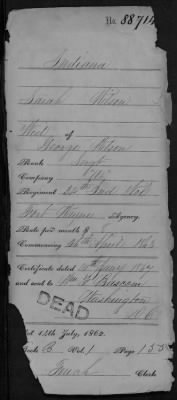 No. 88714
Indiana
Sarah Wilson
Widow of
George Wilson
Rank Sergt
Company
Regiment 24th Ind Vols
Fort Wayne Agency.
Rate per month 8
Commencing April 1863
Certificate dated 1867
and sent to Bascom
Washington
D.C.
DEAD
Act 14th July, 1862.
Book B Vol. 1 Page 155
Clerk